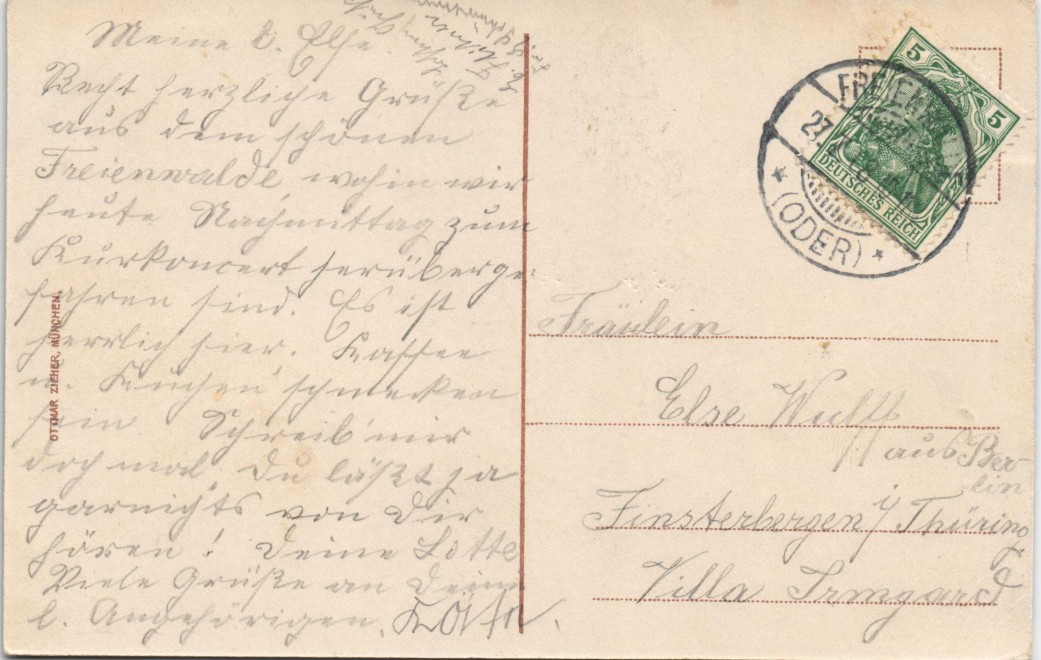 Meine l. Else
Recht herzliche Grüße
aus dem schönen
Freienwalde wohin wir
heute Nachmittag zum
Kurkoncert herüberge-
fahren sind. Es ist
herrlich hier. Kaffee
u. Kuchen schmecken
fein. Schreib mir
doch mal. Du läßt ja
garnichts von Dir
hören! Deine Lotte
Viele Grüße an Deine
l. Angehörigen.
OTTMAR ZIEHER, MÜNCHEN.
5
5
DEUTSCHES REICH
(ODER)
Fräulein
Else Wulff
aus Ber-
lin
Finsterbergen i/ Thüring
Villa Irmgard